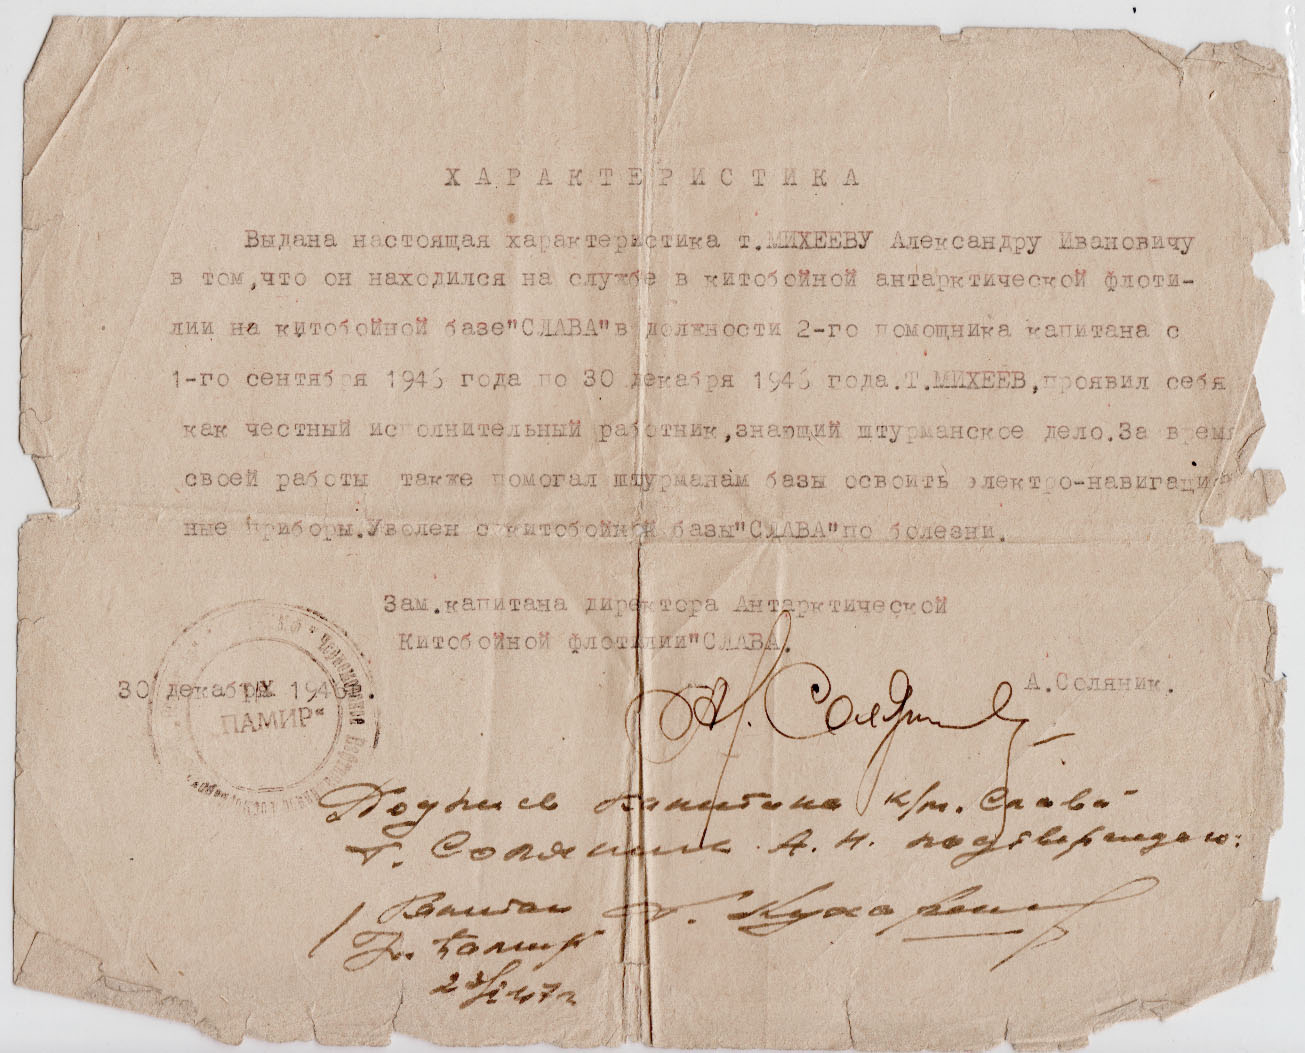 ХАРАКТЕРИСТИКА
Выдана настоящая характеристика т.МИХЕЕВУ Александру Ивановичу
в том,что он находился на службе в китобойной антарктической флоти-
лии на китобойной базе"СЛАВА"в должности 2-го помощника капитана с
1-го сентября 1946 года по 30 декабря 1946 года.Т.МИХЕЕВ,проявил себя
как честный исполнительный работник,знающий штурманское дело.За время
своей работы также помогал штурманам базы освоить электро-навигацион
ные приборы.Уволен с китобойной базы"СЛАВА"по болезни.
Зам.капитана директора Антарктической
Китобойной флотилии"СЛАВА.
30 декабря 1946г.
А.Соляник.
А. Соляник
Черноморское
ПАМИР"
Подпись капитана к/м. Слава"
т. Соляник А.Н. подтверждаю:
Капитан Г. Кухаренко
Памир"
47г